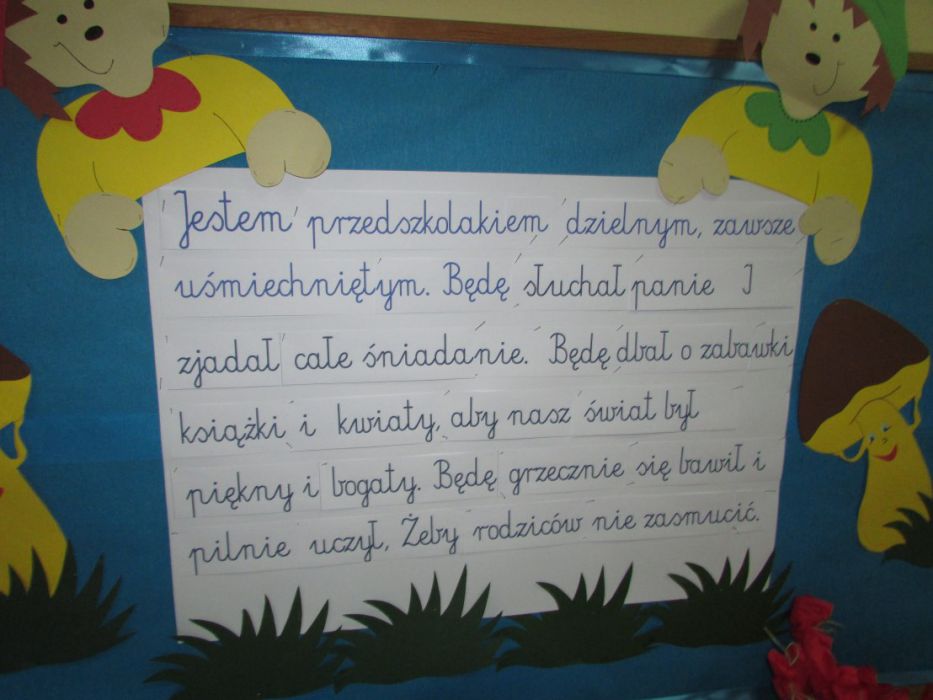 Jestem przedszkolakiem dzielnym, zawsze
uśmiechniętym. Będę słuchał panie I
zjadał całe śniadanie. Będę dbał o zabawki
książki i kwiaty, aby nasz świat był
piękny i bogaty. Będę grzecznie się bawił i
pilnie uczył, Żeby rodziców nie zasmucić.